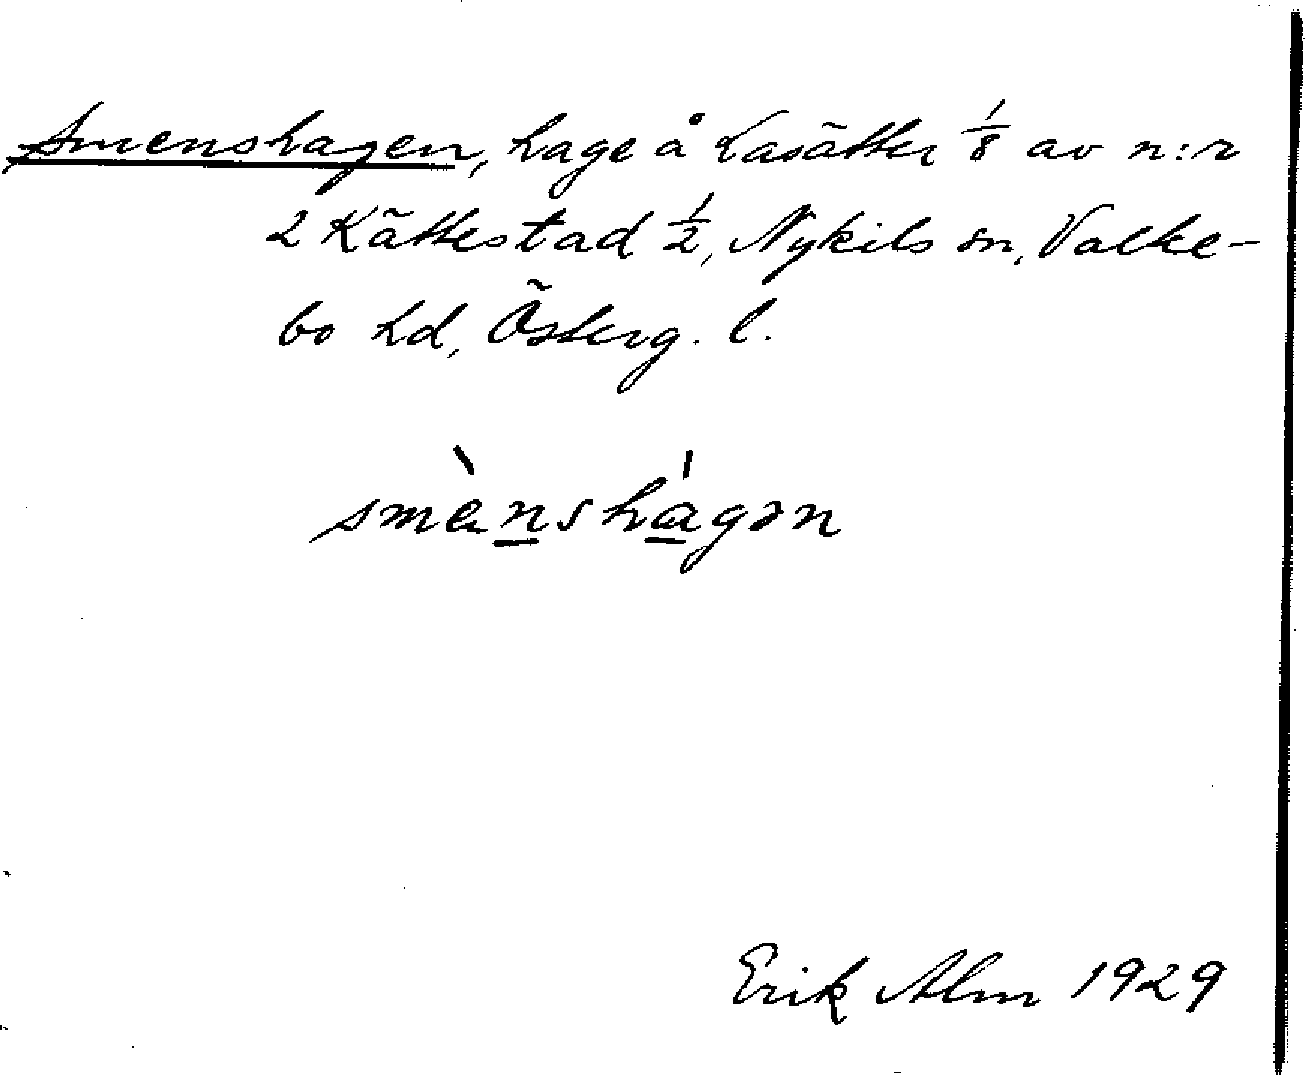 Smenshagen, hage å Lasätter 1/8 av n:r
2 Kättestad 1/2, Nykils sn, Valke-
bo hd, Österg. l.
smènshágən
Erik Alm 1929